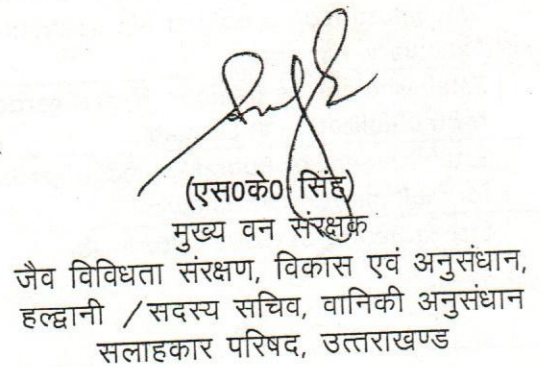 (एस0के0 सिंह)
मुख्य वन संरक्षक
जैव विविधता संरक्षण, विकास एवं अनुसंधान,
हल्द्वानी /सदस्य सचिव, वानिकी अनुसंधान
सलाहकार परिषद, उत्तराखण्ड